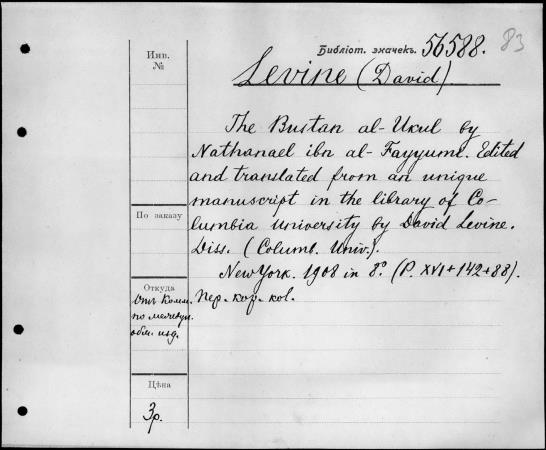 Инв.
№
Библіот. значекъ. 56588.
83
Levine (David)
The Bustan al-Ukul by
Nathanael ibn al-Fayyumi. Edited
and translated from an unique
manuscript in the library of Co-
lumbia University by David Levine.
Diss. (Columb. Univ.).
New York. 1908 in 8º. (P. XVI+142+88).
Пер. кор. кol.
По заказу
Откуда
Отъ Комм.
по междун.
обм. изд.
Цѣна
3р.